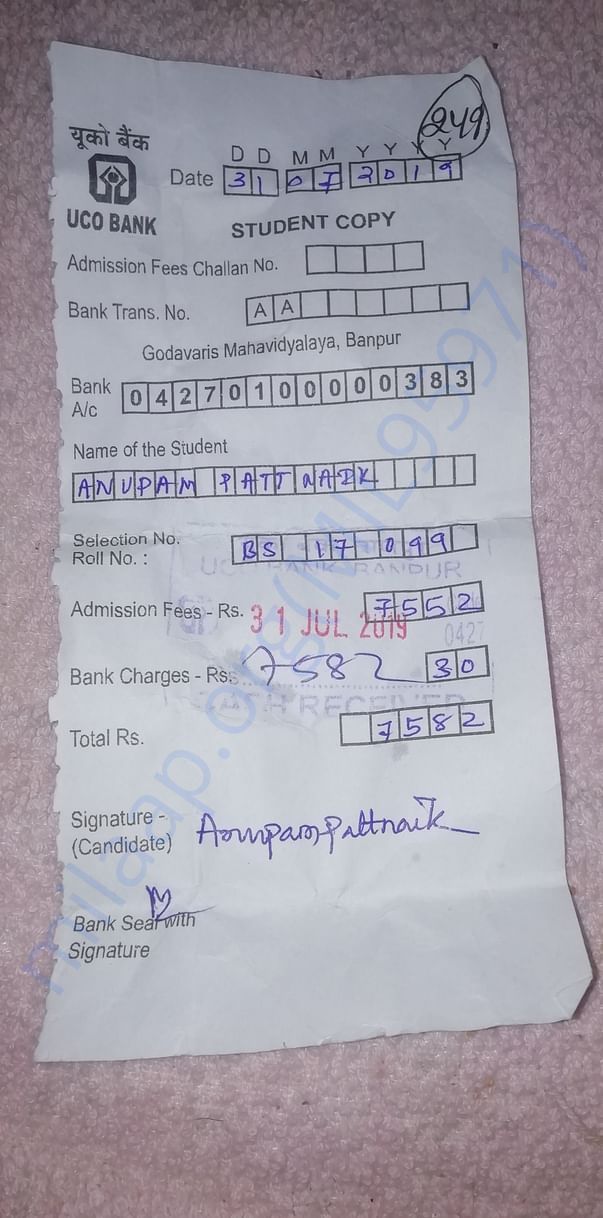 यूको बैंक
UCO BANK
249
D D M M Y Y Y Y
Date 31 07 2019
STUDENT COPY
Admission Fees Challan No.
Bank Trans. No. A A
Godavaris Mahavidyalaya, Banpur
Bank A/c 04270100000383
Name of the Student
ANUPAM PATTNAIK
Selection No.
Roll No. : BS 17 099
UCO BANK BANPUR
Admission Fees - Rs. 7552
31 JUL 2019
0427
Bank Charges - Rs. 7582 30
CASH RECEIVED
Total Rs. 7582
Signature -
(Candidate) Anupam Pattnaik
Bank Seal with
Signature
milaap.org(MIL95971)